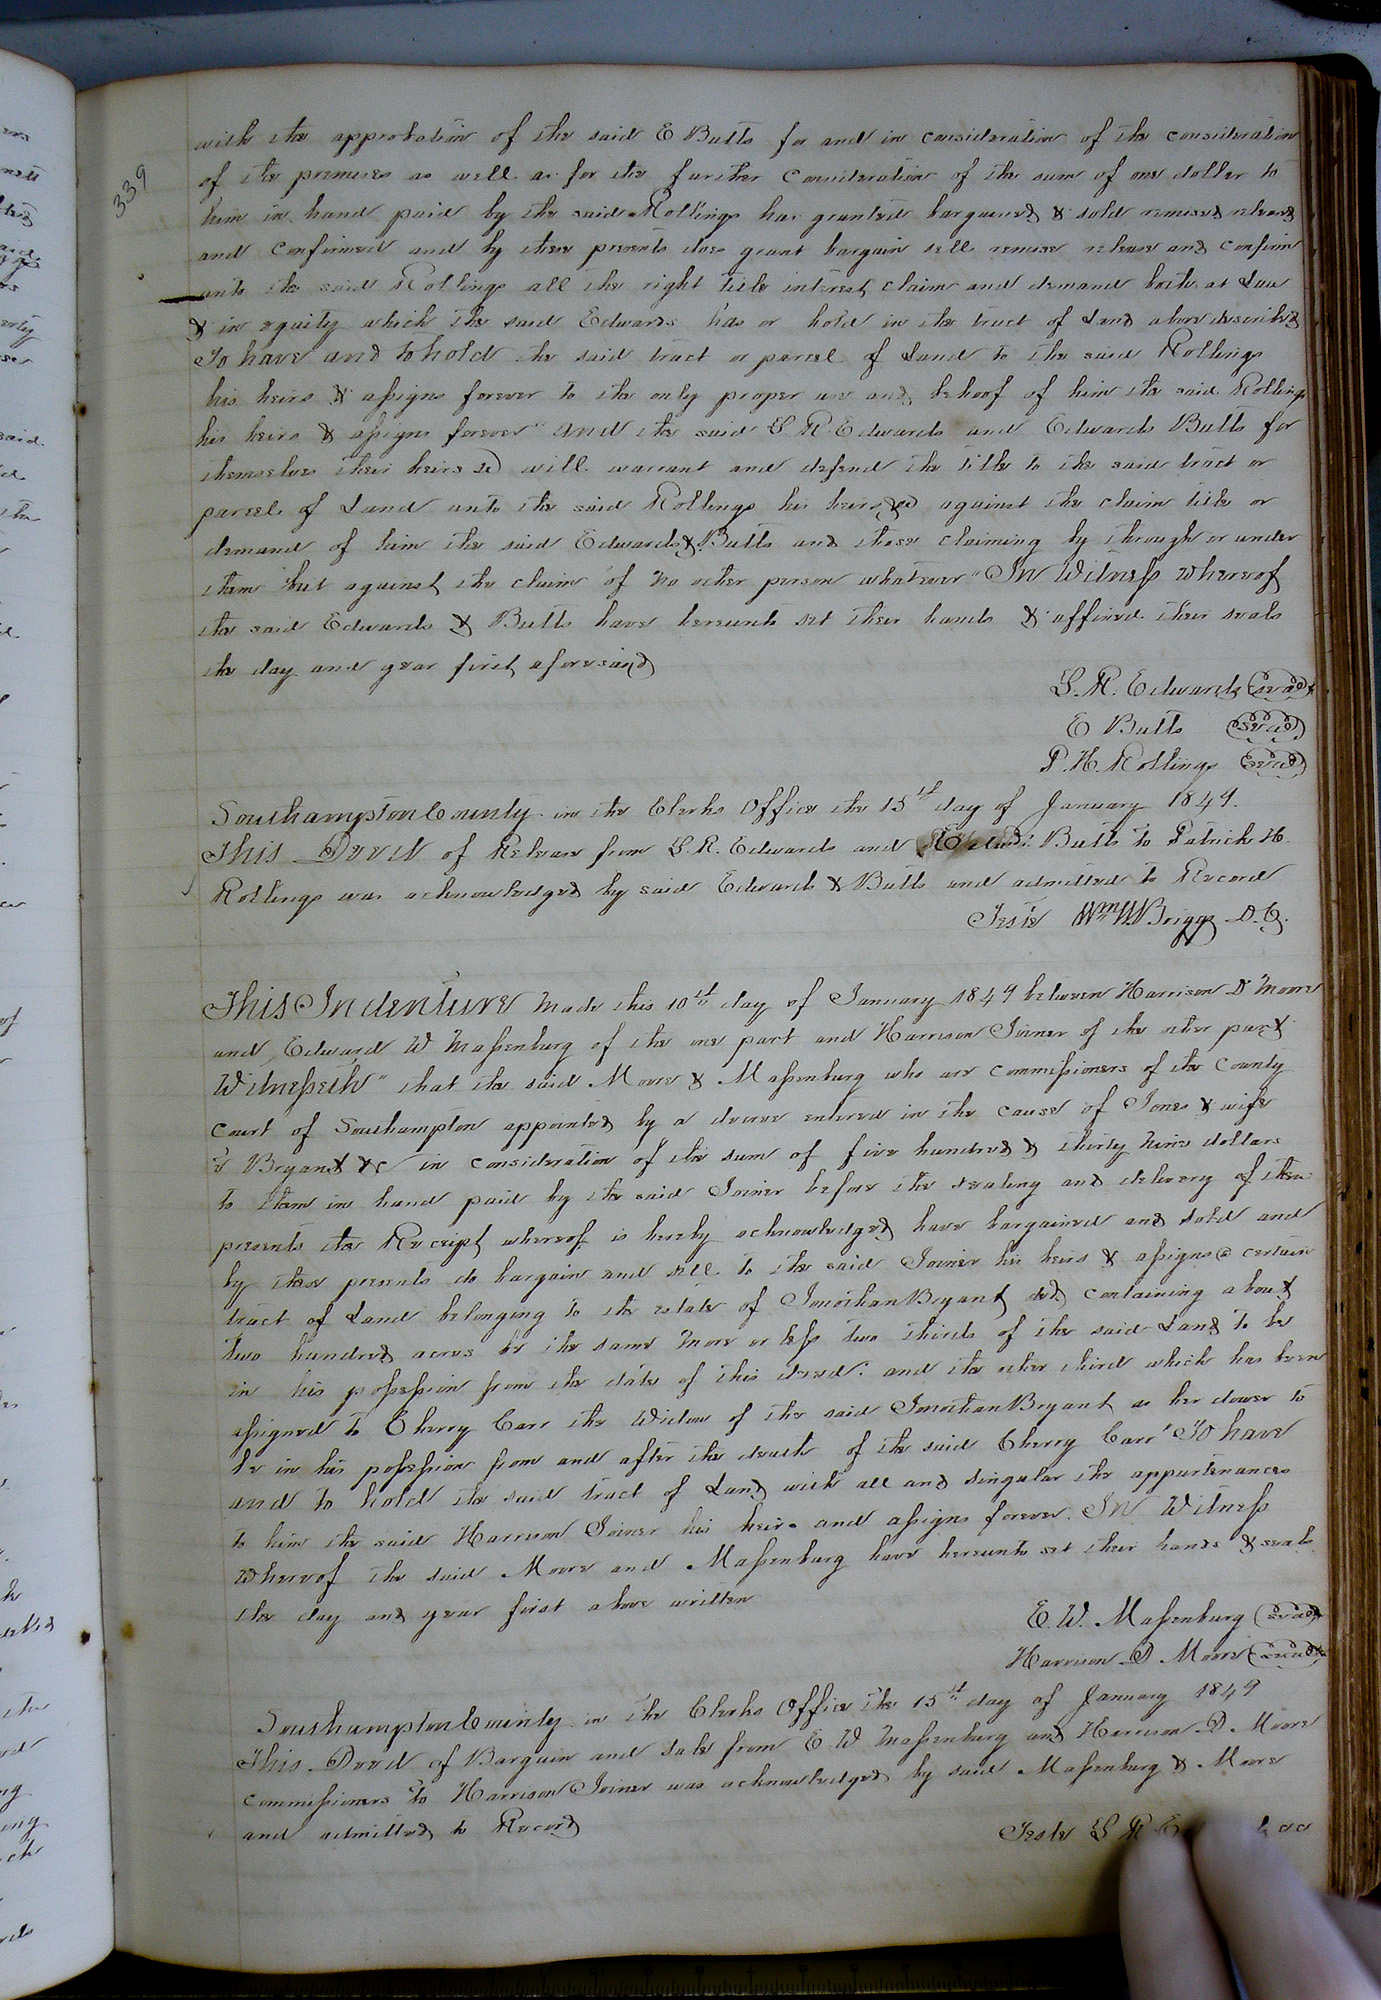 339
with the approbation of the said E Butts for and in consideration of the consideration
of the premises as well as for the further Consideration of the sum of one dollar to
him in hand paid by the said Rollings has granted bargained & sold remised released
and Confirmed and by these presents does grant bargain sell remise release and confirm
unto the said Rollings all the right title interest claim and demand both at Law
& in equity which the said Edwards has or hold in the tract of Land above described
To have and to hold the said tract or parcel of Land to the said Rollings
his heirs & assigns forever to the only proper use and behoof of him the said Rollings
his heirs & assigns forever" and the said L. R. Edwards and Edwards Butts for
themselves their heirs &c will warrant and defend the title to the said tract or
parcel of Land unto the said Rollings his heirs &c against the claim title or
demand of him the said Edwards & Butts and those claiming by through or under
them but against the claim of no other person whatever" In Witness whereof
the said Edwards & Butts have hereunto set their hands & affixed their seals
the day and year first aforesaid
L. R. Edwards (seal)
E Butts (seal)
P. H. Rollings (seal)
Southampton County in the Clerks Office the 15th day of January 1849.
This Deed of Release from L. R. Edwards and Butts to Patrick H.
Rollings was acknowledged by said Edwards & Butts and admitted to Record
Teste Wm W Briggs D. C.
This Indenture Made this 10th day of January 1849 between Harrison D Moore
and Edward W Massenburg of the one part and Harrison Joiner of the other part
Witnesseth" that the said Moore & Massenburg who are commissioners of the County
Court of Southampton appointed by a decree entered in the cause of Jones & wife
v Bryant &c in consideration of the sum of five hundred & thirty nine dollars
to them in hand paid by the said Joiner before the sealing and delivery of these
presents the Receipt whereof is hereby acknowledged have bargained and sold and
by these presents do bargain and sell to the said Joiner his heirs & assigns a certain
tract of Land belonging to the estate of Jonathan Bryant decd containing about
two hundred acres be the same more or less two thirds of the said Land to be
in his possession from the date of this deed: and the other third which has been
assigned to Cherry Carr the Widow of the said Jonathan Bryant as her dower to
be in his possession from and after the death of the said Cherry Carr" To have
and to hold the said tract of Land with all and singular the appurtenances
to him the said Harrison Joiner his heirs and assigns forever. In Witness
whereof the said Moore and Massenburg have hereunto set their hands & seals
the day and year first above written
E. W. Massenburg (seal)
Harrison D. Moore (seal)
Southampton County in the Clerks Office the 15th day of January 1849
This Deed of Bargain and Sale from E W Massenburg and Harrison D. Moore
commissioners to Harrison Joiner was acknowledged by said Massenburg & Moore
and admitted to Record
Teste L R